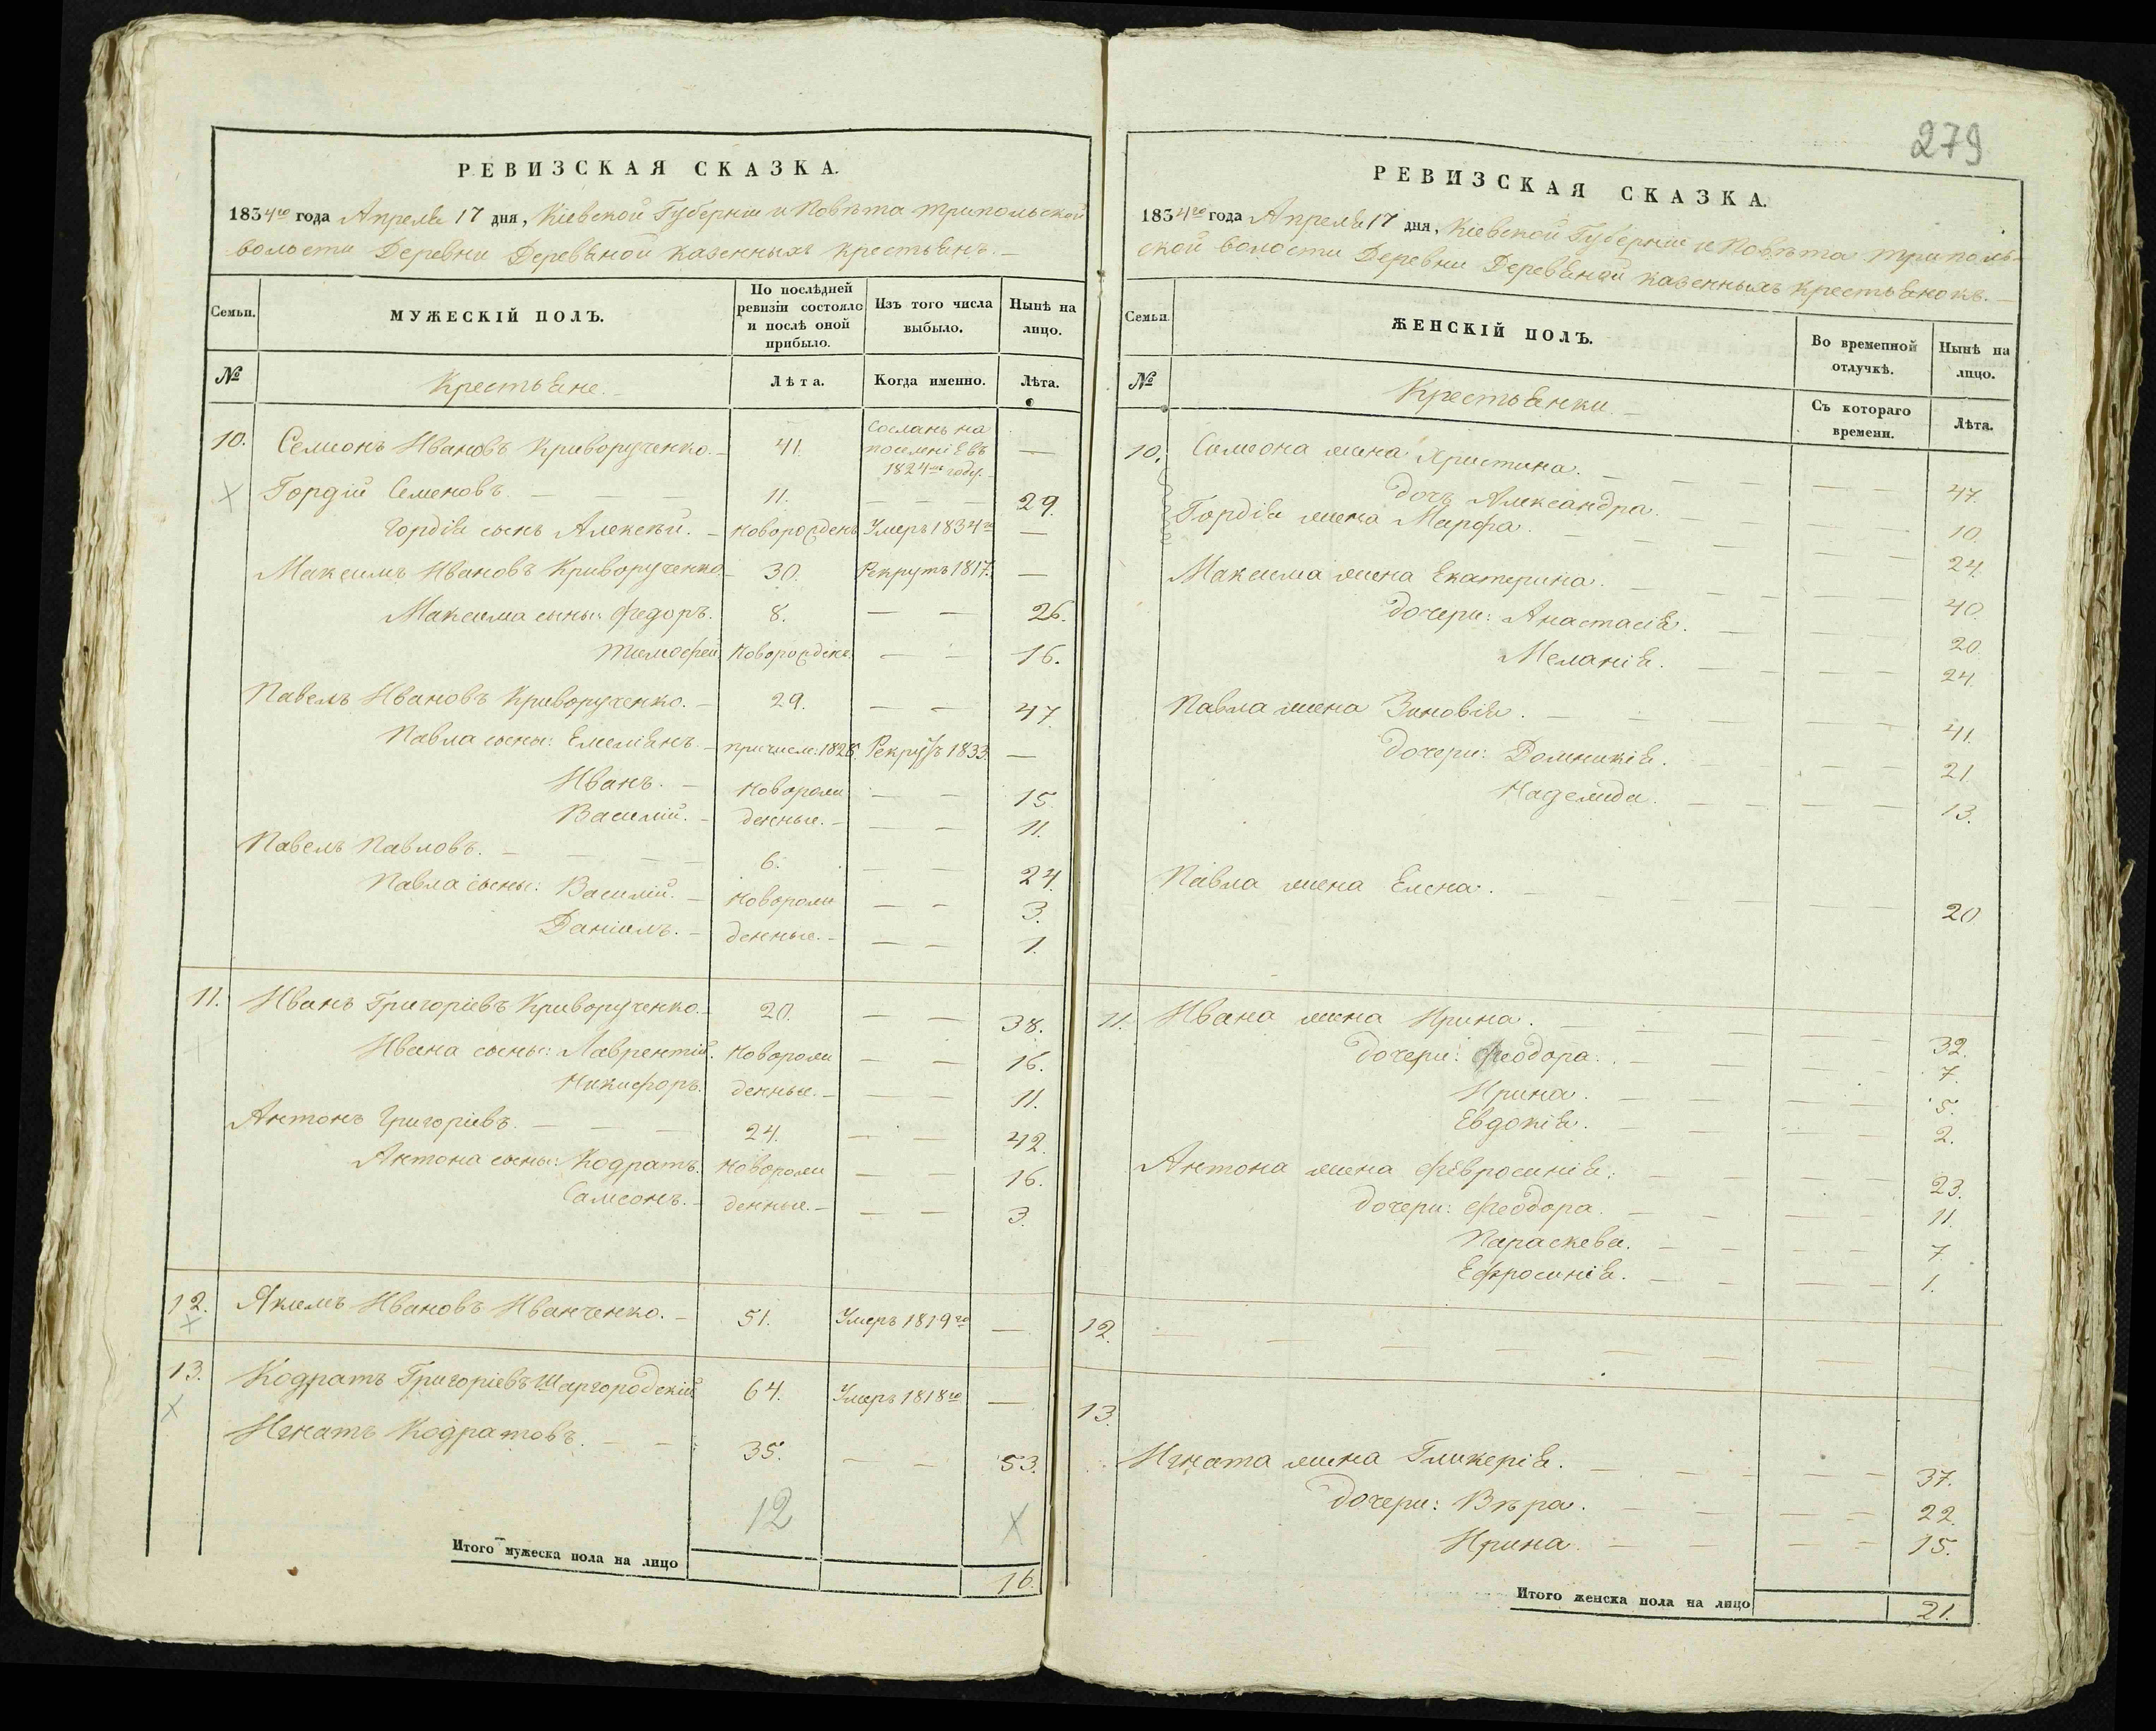 279
РЕВИЗСКАЯ СКАЗКА.
1834го года Апреля 17 дня, Кіевской Губерніи и Повѣта трипольской
волости Деревни Деревяной казенныхъ крестьянъ.
Семьи.
МУЖЕСКІЙ ПОЛЪ.
По послѣдней ревизіи состояло и послѣ оной прибыло.
Изъ того числа выбыло.
Нынѣ на лицо.
№
Крестьяне.
Лѣта.
Когда именно.
Лѣта.
10. Семионъ Ивановъ Криворученко. 41. Сосланъ на поселеніе въ 1824мъ году. —
Гордій Семеновъ. 11. — 29.
Гордія сынъ Алексѣй. новорожденъ Умеръ 1834го —
Максимъ Ивановъ Криворученко 30. Рекрутъ 1817. —
Максима сыны: Федоръ. 8. — 26.
Тимофей — 16.
Павелъ Ивановъ Криворученко. 29. — 47.
Павла сыны: Емеліянъ. причисл: 1828. Рекрутъ 1833. —
Иванъ. новорож — 15.
Василій. денные. — 11.
Павелъ Павловъ. 6. — 24.
Павла сыны: Василій. новорож — 3.
Даніилъ. денные. — 1.
11. Иванъ Григоріевъ Криворученко. 20. — 38.
Ивана сыны: Лаврентій. новорож — 16.
Никифоръ. денные. — 11.
Антонъ Григоріевъ. 24. — 42.
Антона сыны: Кодратъ. новорож — 16.
Самсонъ. денные. — 3.
12. Якимъ Ивановъ Иванченко. 51. Умеръ 1819го —
13. Кодратъ Григоріевъ Шаргородскій 64. Умеръ 1818го —
Игнатъ Кодратовъ. 35. — 53.
12
Итого мужеска пола на лицо 16.
РЕВИЗСКАЯ СКАЗКА.
1834го года Апреля 17 дня, Кіевской Губерніи и Повѣта триполь-
ской волости Деревни Деревяной казенныхъ крестьянокъ.
Семьи.
ЖЕНСКІЙ ПОЛЪ.
Во временной отлучкѣ.
Нынѣ на лицо.
№
Крестьянки.
Съ котораго времени.
Лѣта.
10. Семиона жена Христина. 47.
дочь Александра. 10.
Гордія жена Марфа. 24.
Максима жена Екатерина. 40.
дочери: Анастасія. 20.
Меланія. 24.
Павла жена Зиновія. 41.
дочери: Домникія. 21.
Надежда. 13.
Павла жена Елена. 20
11. Ивана жена Ирина. 32.
дочери: Феодора. 7.
Ирина. 5.
Евдокія. 2.
Антона жена Февросинія. 23.
дочери: Феодора. 11.
Параскева. 7.
Ефросинія. 1.
12. —
13.
Игната жена Гликерія. 37.
дочери: Вѣра. 22.
Ирина. 15.
Итого женска пола на лицо 21.